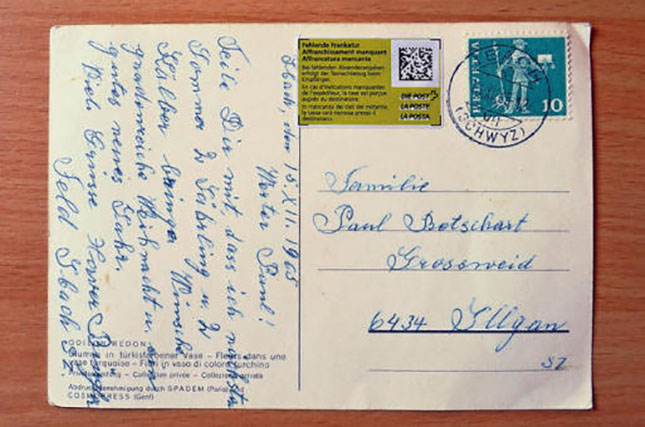 Ibach, den 15. XII. 1965
Werter Paul!
Teile Dir mit, dass ich nächsten
Sommer 2 Gästling u. 2
Kälber bringe. Wünsche
gnadenreiche Weihnacht u. ein
gutes neues Jahr.
Viele Grüsse
Feld Ibach SZ
Fehlende Frankatur
Affranchissement manquant
Affrancatura mancante
Bei fehlenden Absenderangaben
erfolgt der Taxnachbezug beim
Empfänger.
En cas d'indications manquantes
de l'expéditeur, la taxe est perçue
auprès du destinataire.
In mancanza dei dati del mittente,
la tassa verrà riscossa presso il
destinatario.
DIE POST
LA POSTE
LA POSTA
HELVETIA
10
(SCHWYZ)
Familie
Paul Betschart
Grossweid
6434 Illgau
SZ
ODILON REDON
Blumen in türkisfarbener Vase – Fleurs dans une
vase turquoise – Fiori in vaso di colore turchino
Privatsammlung – Collection privée – Collezione privata
Abdruckgenehmigung durch SPADEM (Paris) und
COSMOPRESS (Genf)